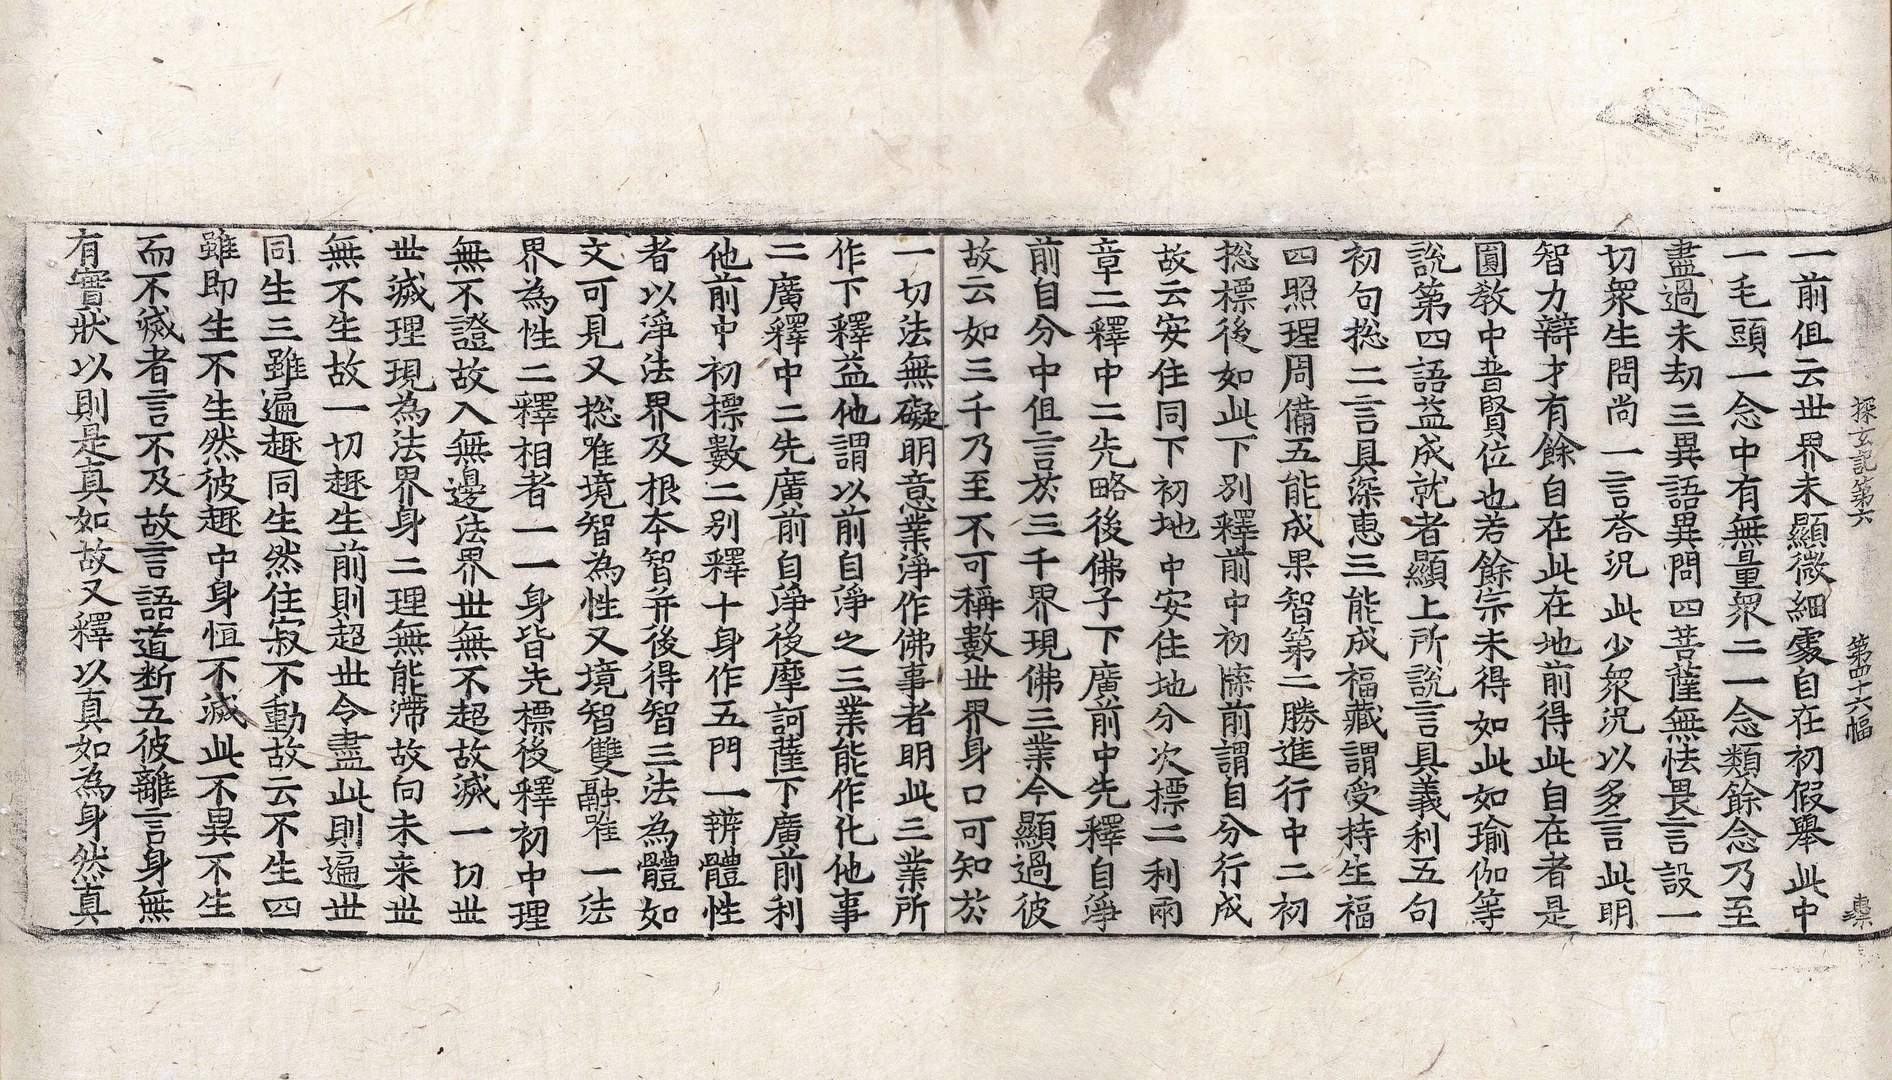 探玄記第六 第四十六幅 𣗥
一前但云世界未顯微細處自在初假舉此中
一毛頭一念中有無量衆二一念類餘念乃至
盡過未劫三異語異問四菩薩無怯畏言設一
切衆生問尚一言荅況此少衆況以多言此明
智力辯才有餘自在此在地前得此自在者是
圓教中普賢位也若餘宗未得如此如瑜伽等
說第四語益成就者顯上所說言具義利五句
初句揔二言具深惠三能成福藏謂受持生福
四照理周備五能成果智第二勝進行中二初
揔標後如此下別釋前中初牒前謂自分行成
故云安住同下初地中安住地分次標二利兩
章二釋中二先略後佛子下廣前中先釋自淨
前自分中但言於三千界現佛三業今顯過彼
故云如三千乃至不可稱數世界身口可知於
一切法無礙明意業淨作佛事者明此三業所
作下釋益他謂以前自淨之三業能作化他事
二廣釋中二先廣前自淨後摩訶薩下廣前利
他前中初標數二別釋十身作五門一辨體性
者以淨法界及根本智并後得智三法為體如
文可見又揔唯境智為性又境智雙融唯一法
界為性二釋相者一一身皆先標後釋初中理
無不證故入無邊法界世無不超故滅一切世
世滅理現為法界身二理無能滯故向未来世
無不生故一切趣生前則超世令盡此則遍世
同生三雖遍趣同生然住寂不動故云不生四
雖即生不生然彼趣中身恒不滅此不異不生
而不滅者言不及故言語道断五彼離言身無
有實狀以則是真如故又釋以真如為身然真